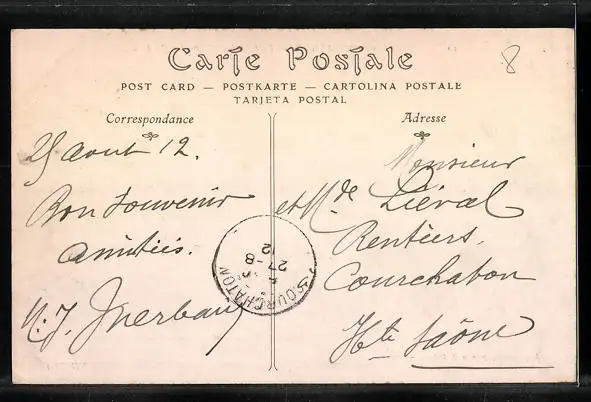 8
Carte Postale
POST CARD — POSTKARTE — CARTOLINA POSTALE
TARJETA POSTAL
Correspondance
25 aout 12.
Bon Souvenir
amitiés.
Adresse
Monsieur
et Mde Liéval
Rentiers.
Courchaton
Hte Saône
COURCHATON
27 - 8
12